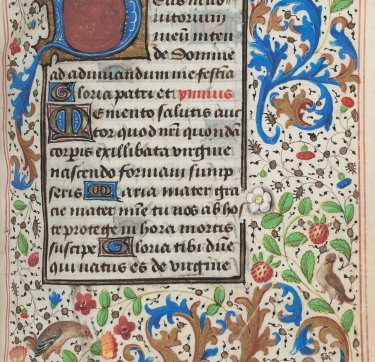 Deus in ad
iutorium
meū inten
de Domine
ad adiuuandum me festia
Gloria patri et ymnus
Memento salutis auc
tor quod nr̄i quondā
corpis ex illibata virgine
nascendo formam sump
seris Maria mater gra
ae mater mīe tu nos ab ho
te protege in hora mortis
suscipe Gloria tibi dn̄e
qui natus es de virgine